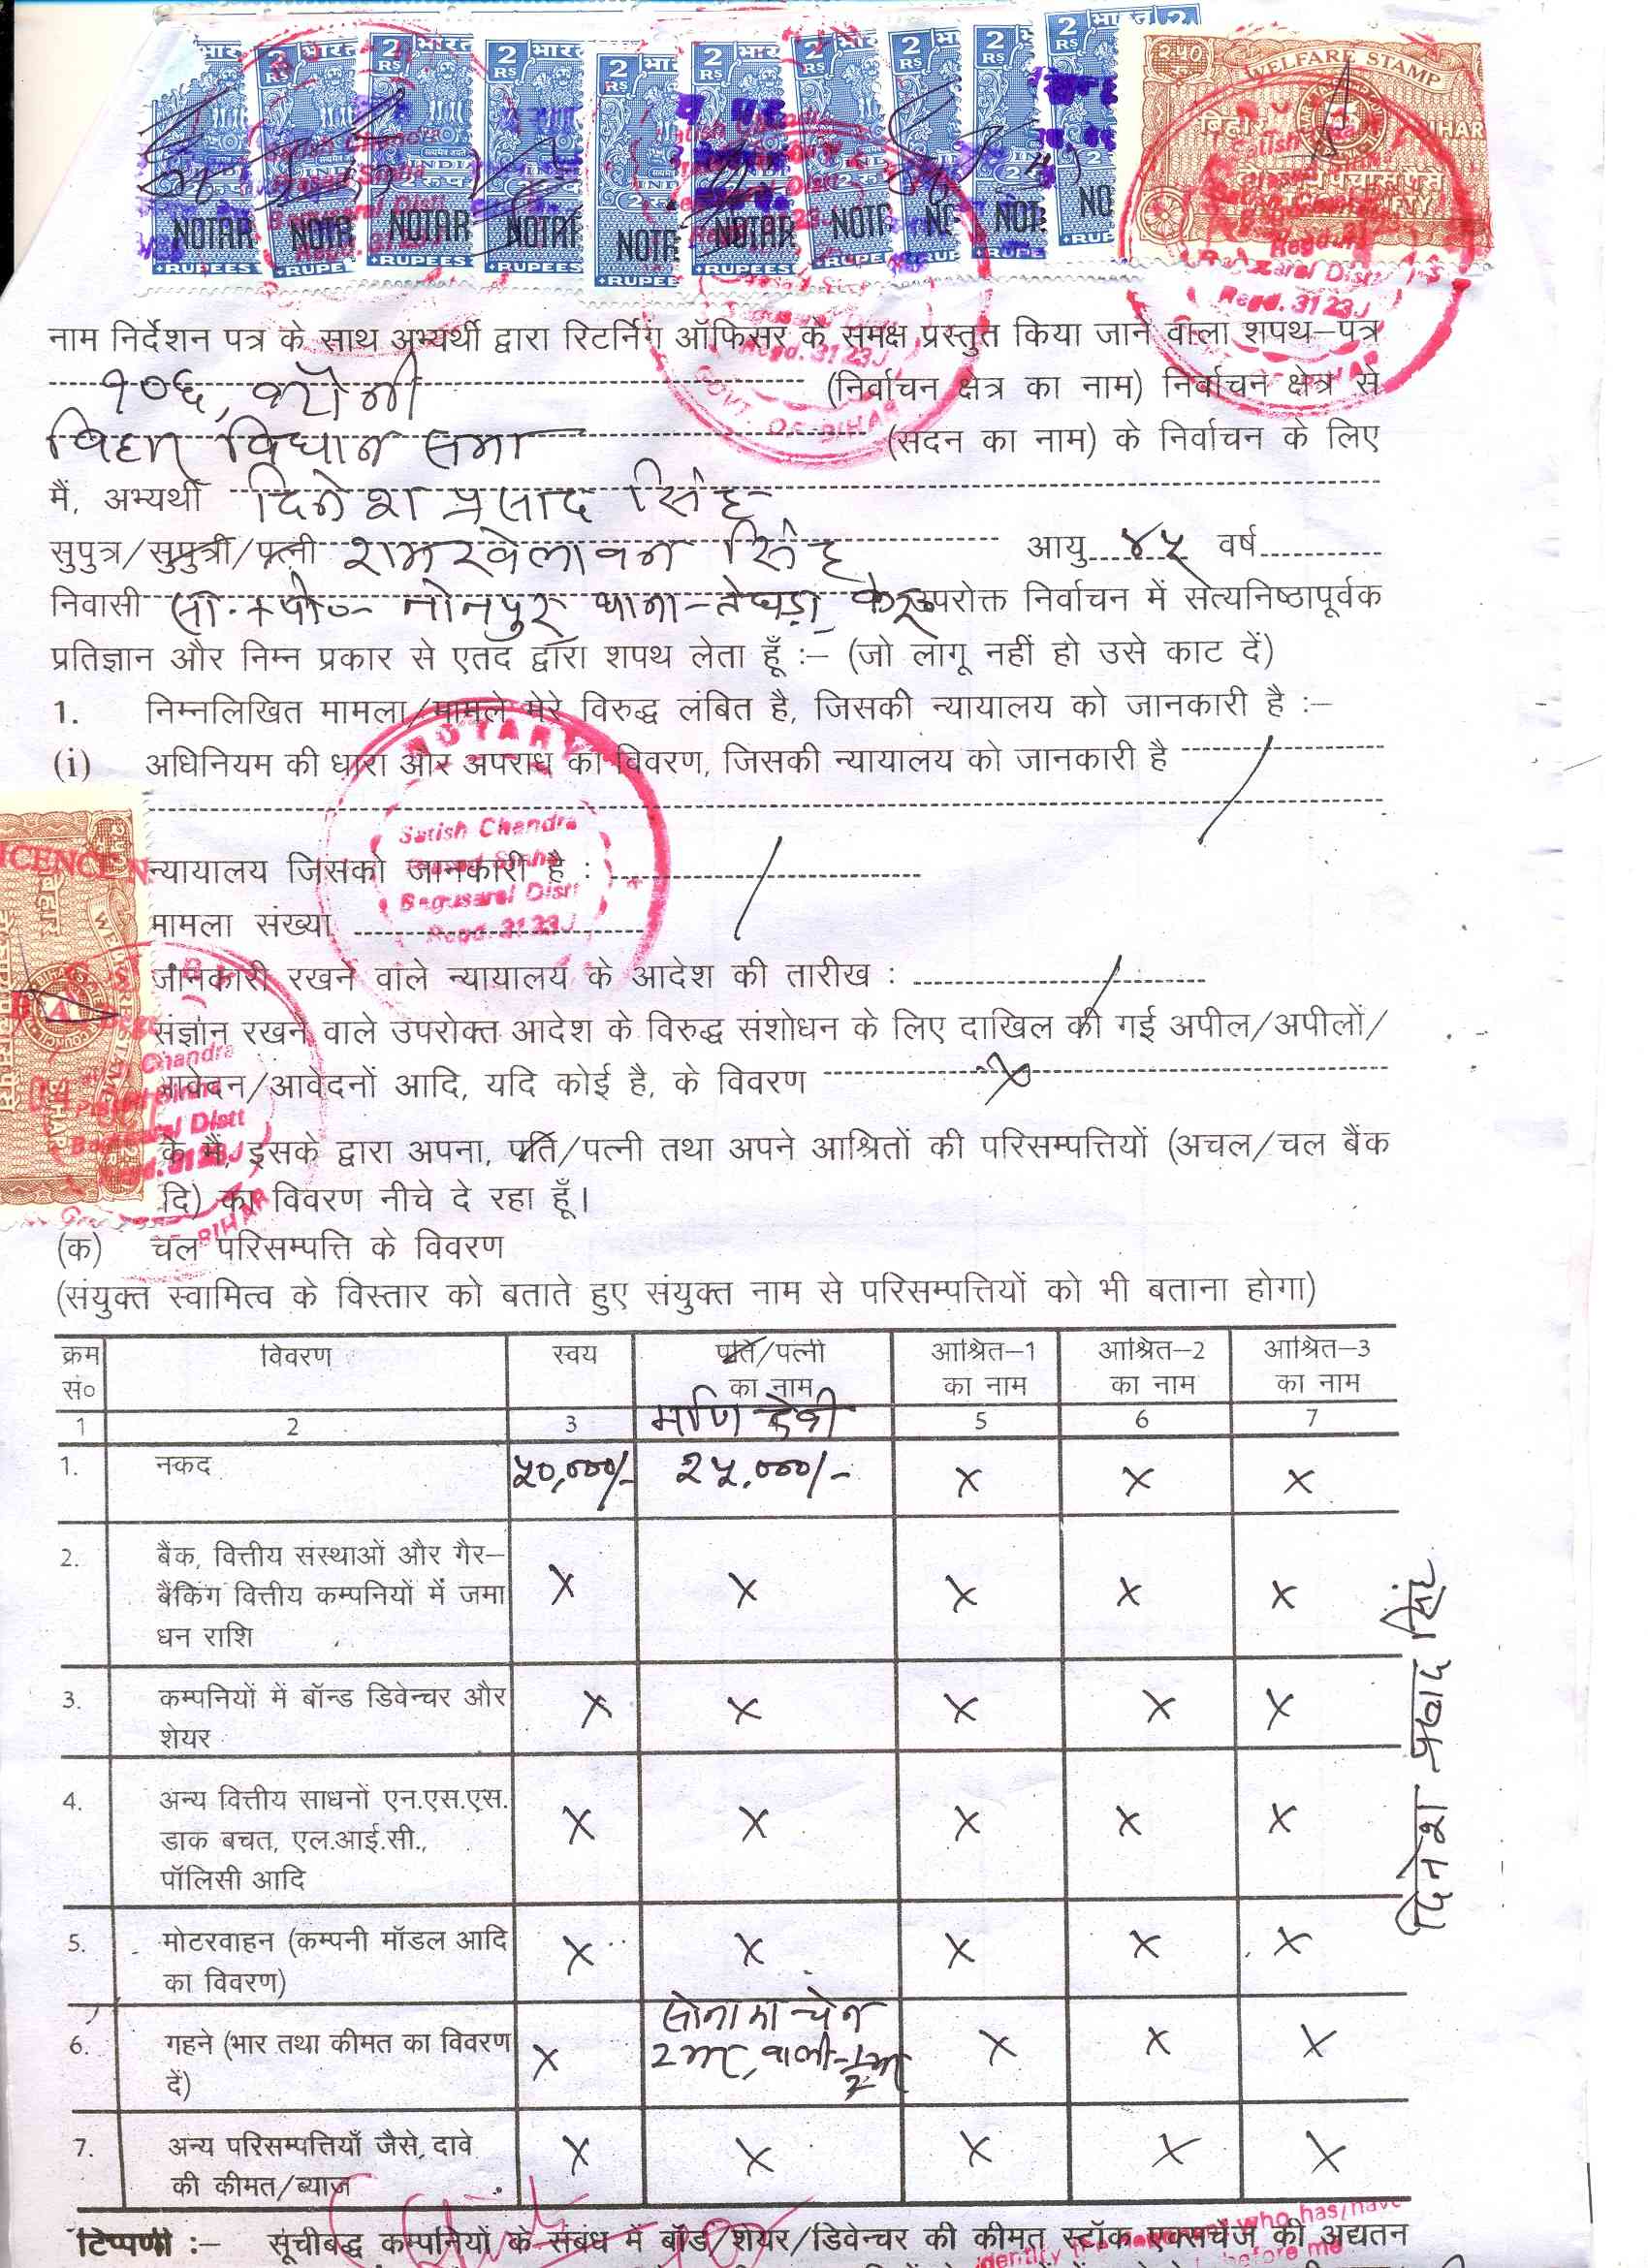 2 RS भारत
NOTAR
RUPEES
WELFARE STAMP
बिहार BIHAR
नाम निर्देशन पत्र के साथ अभ्यर्थी द्वारा रिटर्निंग ऑफिसर के समक्ष प्रस्तुत किया जाने वाला शपथ–पत्र
१०६, बरौनी (निर्वाचन क्षेत्र का नाम) निर्वाचन क्षेत्र से
बिहार विधान सभा (सदन का नाम) के निर्वाचन के लिए
मैं, अभ्यर्थी दिनेश प्रसाद सिंह
सुपुत्र/सुपुत्री/पत्नी रामखेलावन सिंह आयु ४५ वर्ष
निवासी सा.+पो०– नोनपुर थाना–तेघड़ा के उपरोक्त निर्वाचन में सत्यनिष्ठापूर्वक
प्रतिज्ञान और निम्न प्रकार से एतद द्वारा शपथ लेता हूँ :– (जो लागू नहीं हो उसे काट दें)
1. निम्नलिखित मामला/मामले मेरे विरुद्ध लंबित है, जिसकी न्यायालय को जानकारी है :–
(i) अधिनियम की धारा और अपराध का विवरण, जिसकी न्यायालय को जानकारी है
NOTARY
Satish Chandra
Begusarai Distt
Regd. 3123J
न्यायालय जिसको जानकारी है :
मामला संख्या
जानकारी रखने वाले न्यायालय के आदेश की तारीख :
संज्ञान रखने वाले उपरोक्त आदेश के विरुद्ध संशोधन के लिए दाखिल की गई अपील/अपीलों/
आवेदन/आवेदनों आदि, यदि कोई है, के विवरण
के मैं, इसके द्वारा अपना, पति/पत्नी तथा अपने आश्रितों की परिसम्पत्तियों (अचल/चल बैंक
दि) का विवरण नीचे दे रहा हूँ।
(क) चल परिसम्पत्ति के विवरण
(संयुक्त स्वामित्व के विस्तार को बताते हुए संयुक्त नाम से परिसम्पत्तियों को भी बताना होगा)
क्रम सं० विवरण स्वय पति/पत्नी का नाम आश्रित–1 का नाम आश्रित–2 का नाम आश्रित–3 का नाम
1 2 3 मणि देवी 5 6 7
1. नकद ५०,०००/- २५,०००/- x x x
2. बैंक, वित्तीय संस्थाओं और गैर–
बैंकिंग वित्तीय कम्पनियों में जमा x x x x x
धन राशि
3. कम्पनियों में बॉन्ड डिवेन्चर और x x x x x
शेयर
4. अन्य वित्तीय साधनों एन.एस.एस.
डाक बचत, एल.आई.सी., x x x x x
पॉलिसी आदि
5. मोटरवाहन (कम्पनी मॉडल आदि x x x x x
का विवरण)
सोना का चेन
6. गहने (भार तथा कीमत का विवरण x x x x
दें)
7. अन्य परिसम्पत्तियाँ जैसे, दावे x x x x x
की कीमत/ब्याज
दिनेश प्रसाद सिंह
टिप्पणी :– सूचीबद्ध कम्पनियों के संबंध में बॉड/शेयर/डिवेन्चर की कीमत स्टॉक एक्सचेंज की अद्यतन